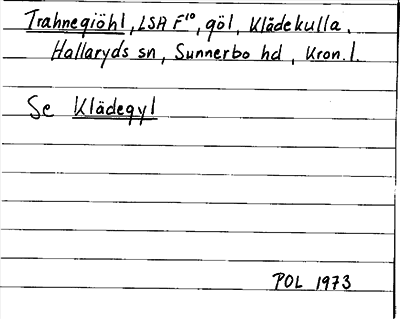 Trahnegiöhl, LSA F¹⁰, göl, Klädekulla,
Hallaryds sn, Sunnerbo hd, Kron. l.
Se Klädegyl
POL 1973